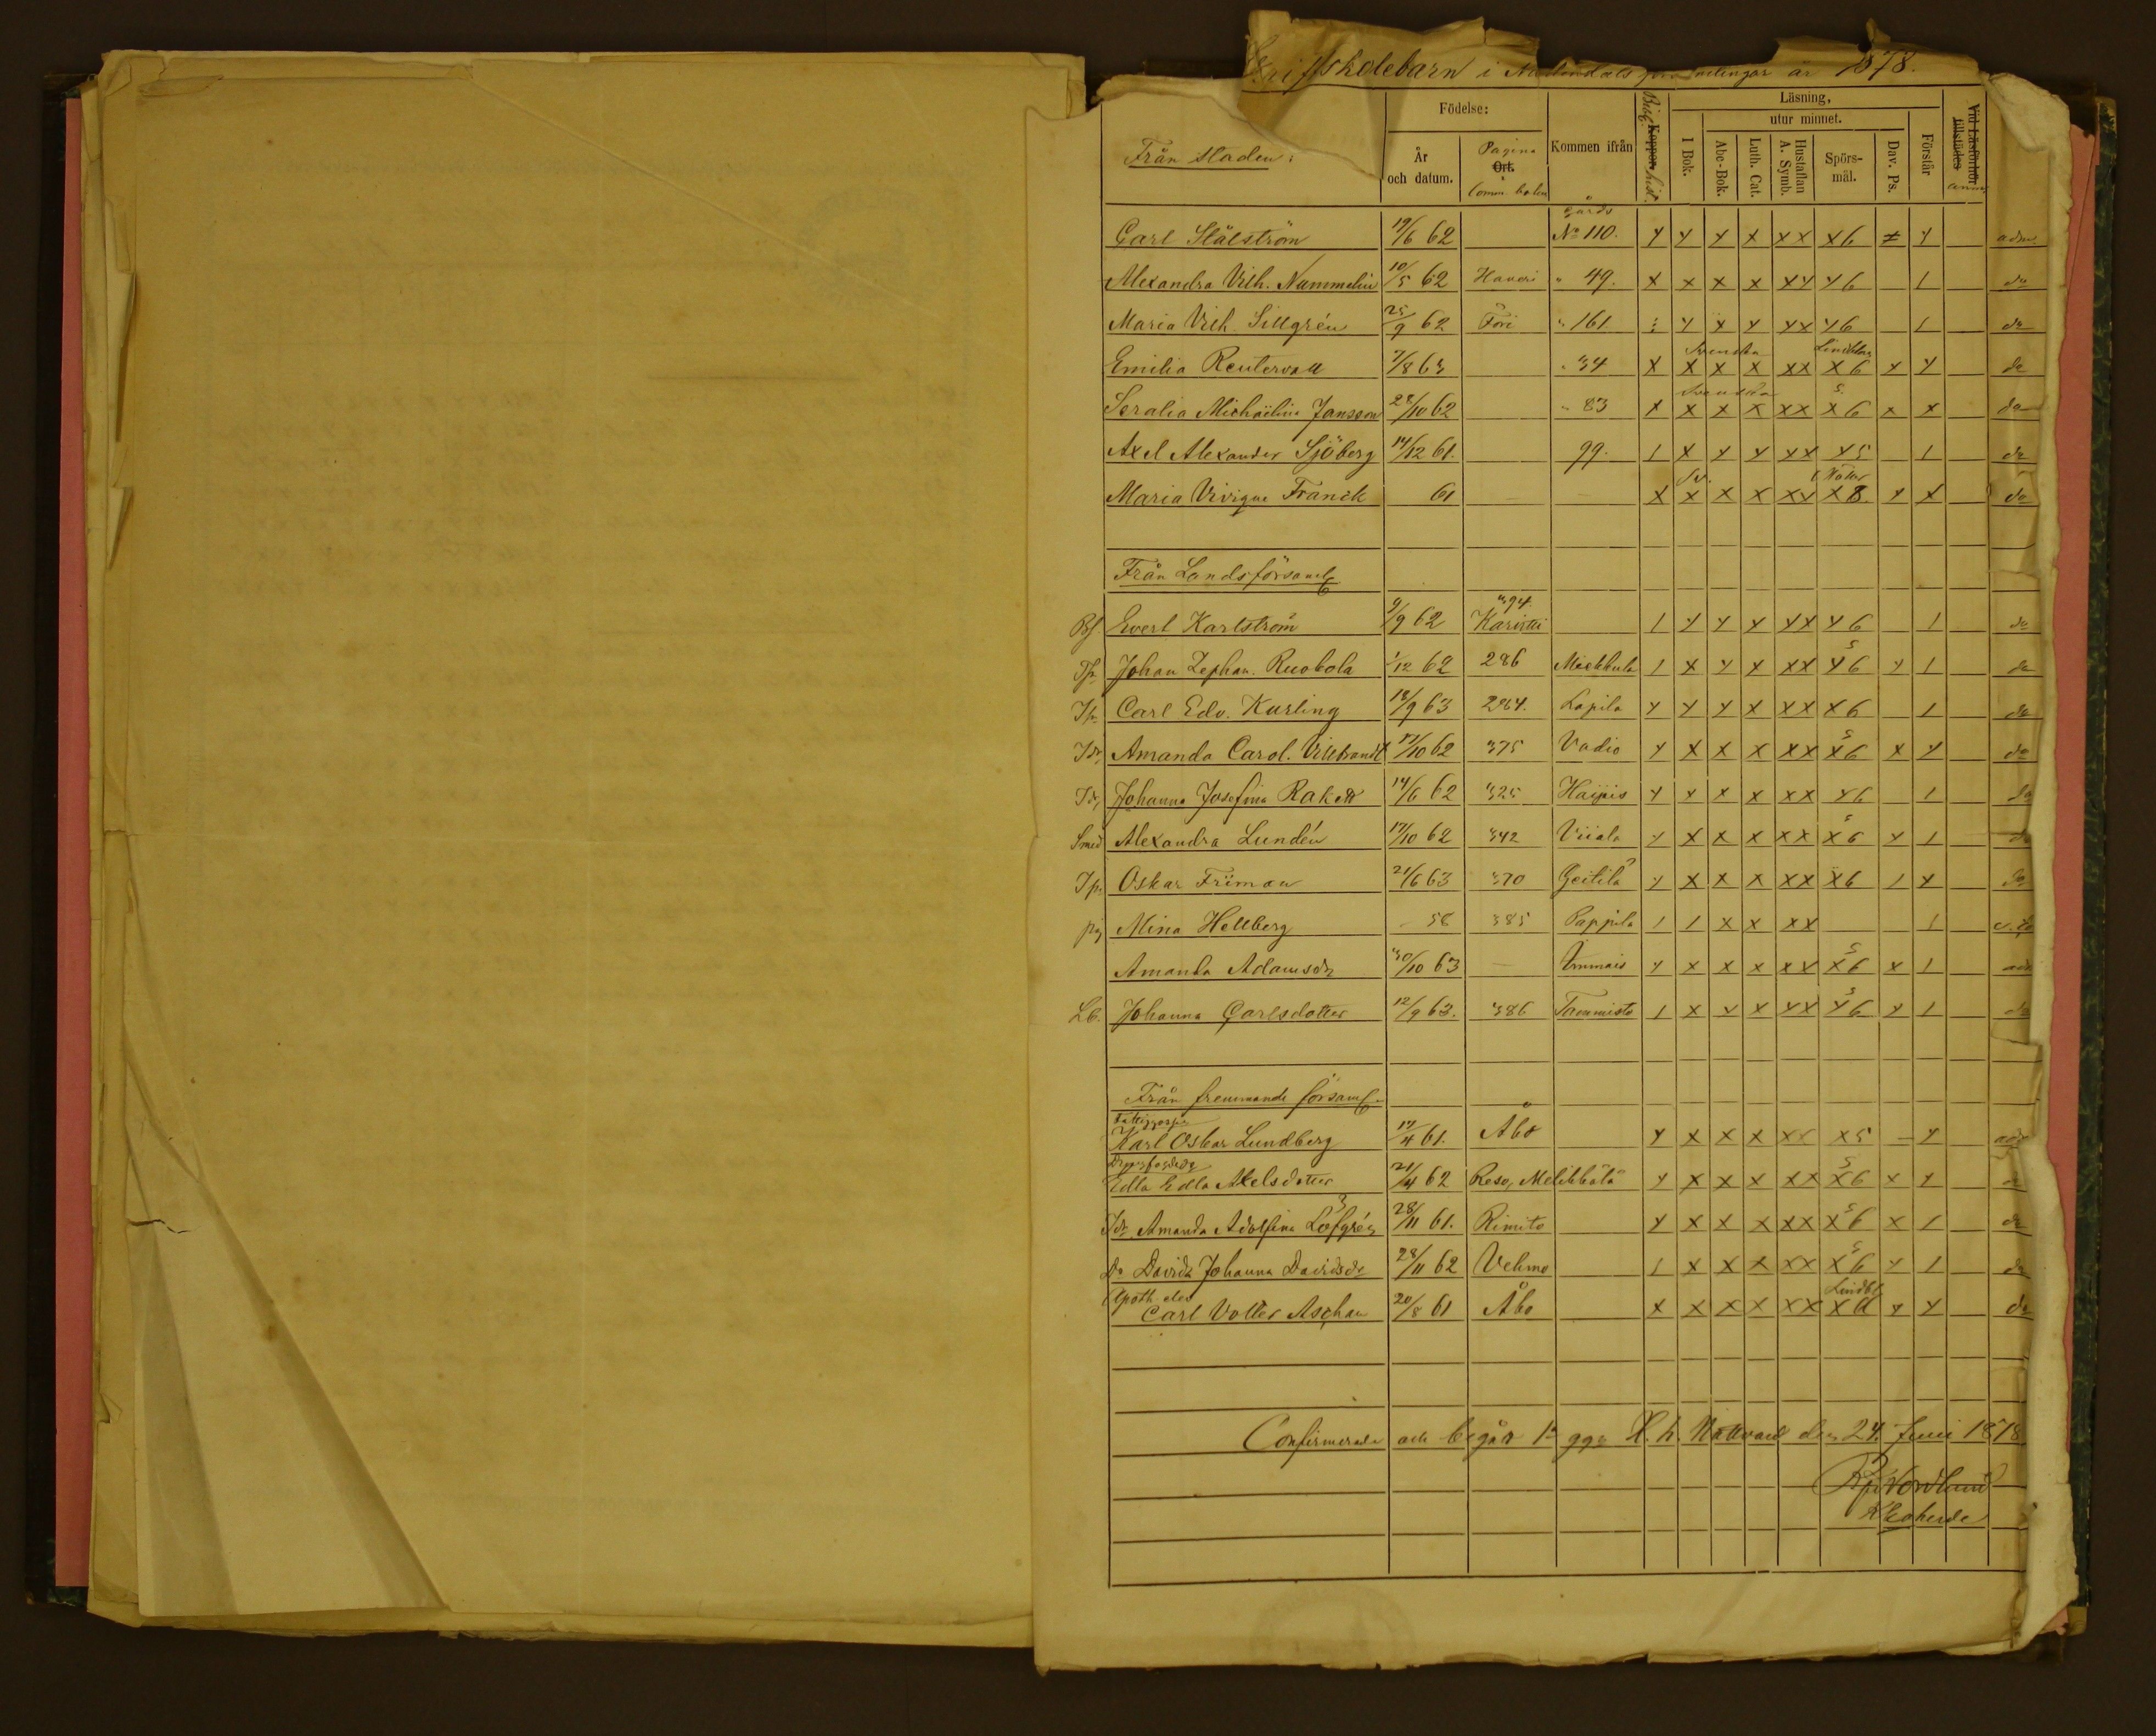 Skriftskolebarn i Nådendals församlingar år 1878.
Födelse: Kommen ifrån Bibl. hist. Koppor. Läsning, Vid Läsförhör tillstädes
utur minnet.
Från staden: År och datum. Pagina Ort. i Comm. boken I Bok. Abc-Bok. Luth. Cat. Hustaflan A. Symb. Spörs-mål. Dav. Ps. Förstår
gårds
Carl Stålström 19/6 62 No 110. x x x x xx x6 x x adm.
Alexandra Vilh. Nummelin 10/5 62 Haveri " 49. x x x x xx x6 1 do
Maria Vilh. Sillgrén 25/9 62 Föri " 161 x x x xx x6 1 do
Svenska Lindblad
Emilia Reutervall 7/8 63 " 34 x x x x xx x6 x x do
Svenska 5
Seralia Michaëlina Jansson 28/10 62 " 83 x x x x xx x6 x x do
Axel Alexander Sjöberg 14/12 61. 99. 1 x x x xx x5 1 do
Sv.
Maria Franck 61 x x x x xx x8 x x do
Från Landsförsaml
394.
Evert Karlström 9/9 62 Karistti 1 x x x xx x6 1 do
5
Johan Zephan. Ruokola 1/12 62 286 Miekkula 1 x x x xx x6 x 1 do
Ip. Carl Edv. Karling 18/9 63 264. Lapila x x x x xx x6 1 do
5
Amanda Carol. Villbrandt 17/10 62 375 Vadio x x x x xx x6 x x do
Johanna Josefina Rakett 14/6 62 325 Haijais x x x x xx x6 1 do
5
Smed Alexandra Lundén 17/10 62 342 Viiala x x x x xx x6 x 1 do
Ip. Oskar Friman 21/6 63 370 Geitilä x x x x xx x6 1 x do
pig Mina Hellberg 58 385 Pappila 1 1 x x xx 1
5
Amanda Adamsdr 30/10 63 Ummais x x x x xx x6 x 1 adm
5
Johanna Carlsdotter 12/9 63. 386 Tammisto 1 x x x xx x6 x 1 do
Från fremmande församl.
Karl Oskar Lundberg 17/4 61. Åbo x x x x xx x5 x adm
5
Edla Edla Axelsdotter 21/4 62 Reso, Melikkälä x x x x xx x6 x x do
3 5
Amanda Adolfina Löfgrén 28/11 61. Rimito x x x x xx x6 x 1 do
5
Do Davida Johanna Davidsdr 28/11 62 Vehmo 1 x x x xx x6 x 1 do
Apoth. elev Lindbl
Carl Volter Aschan 20/8 61 Åbo x x x x xx x x x do
Confirmerade och begår 1a ggn H. h. Nattvard den 24 Juni 1878
Nordlund
Kkoherde